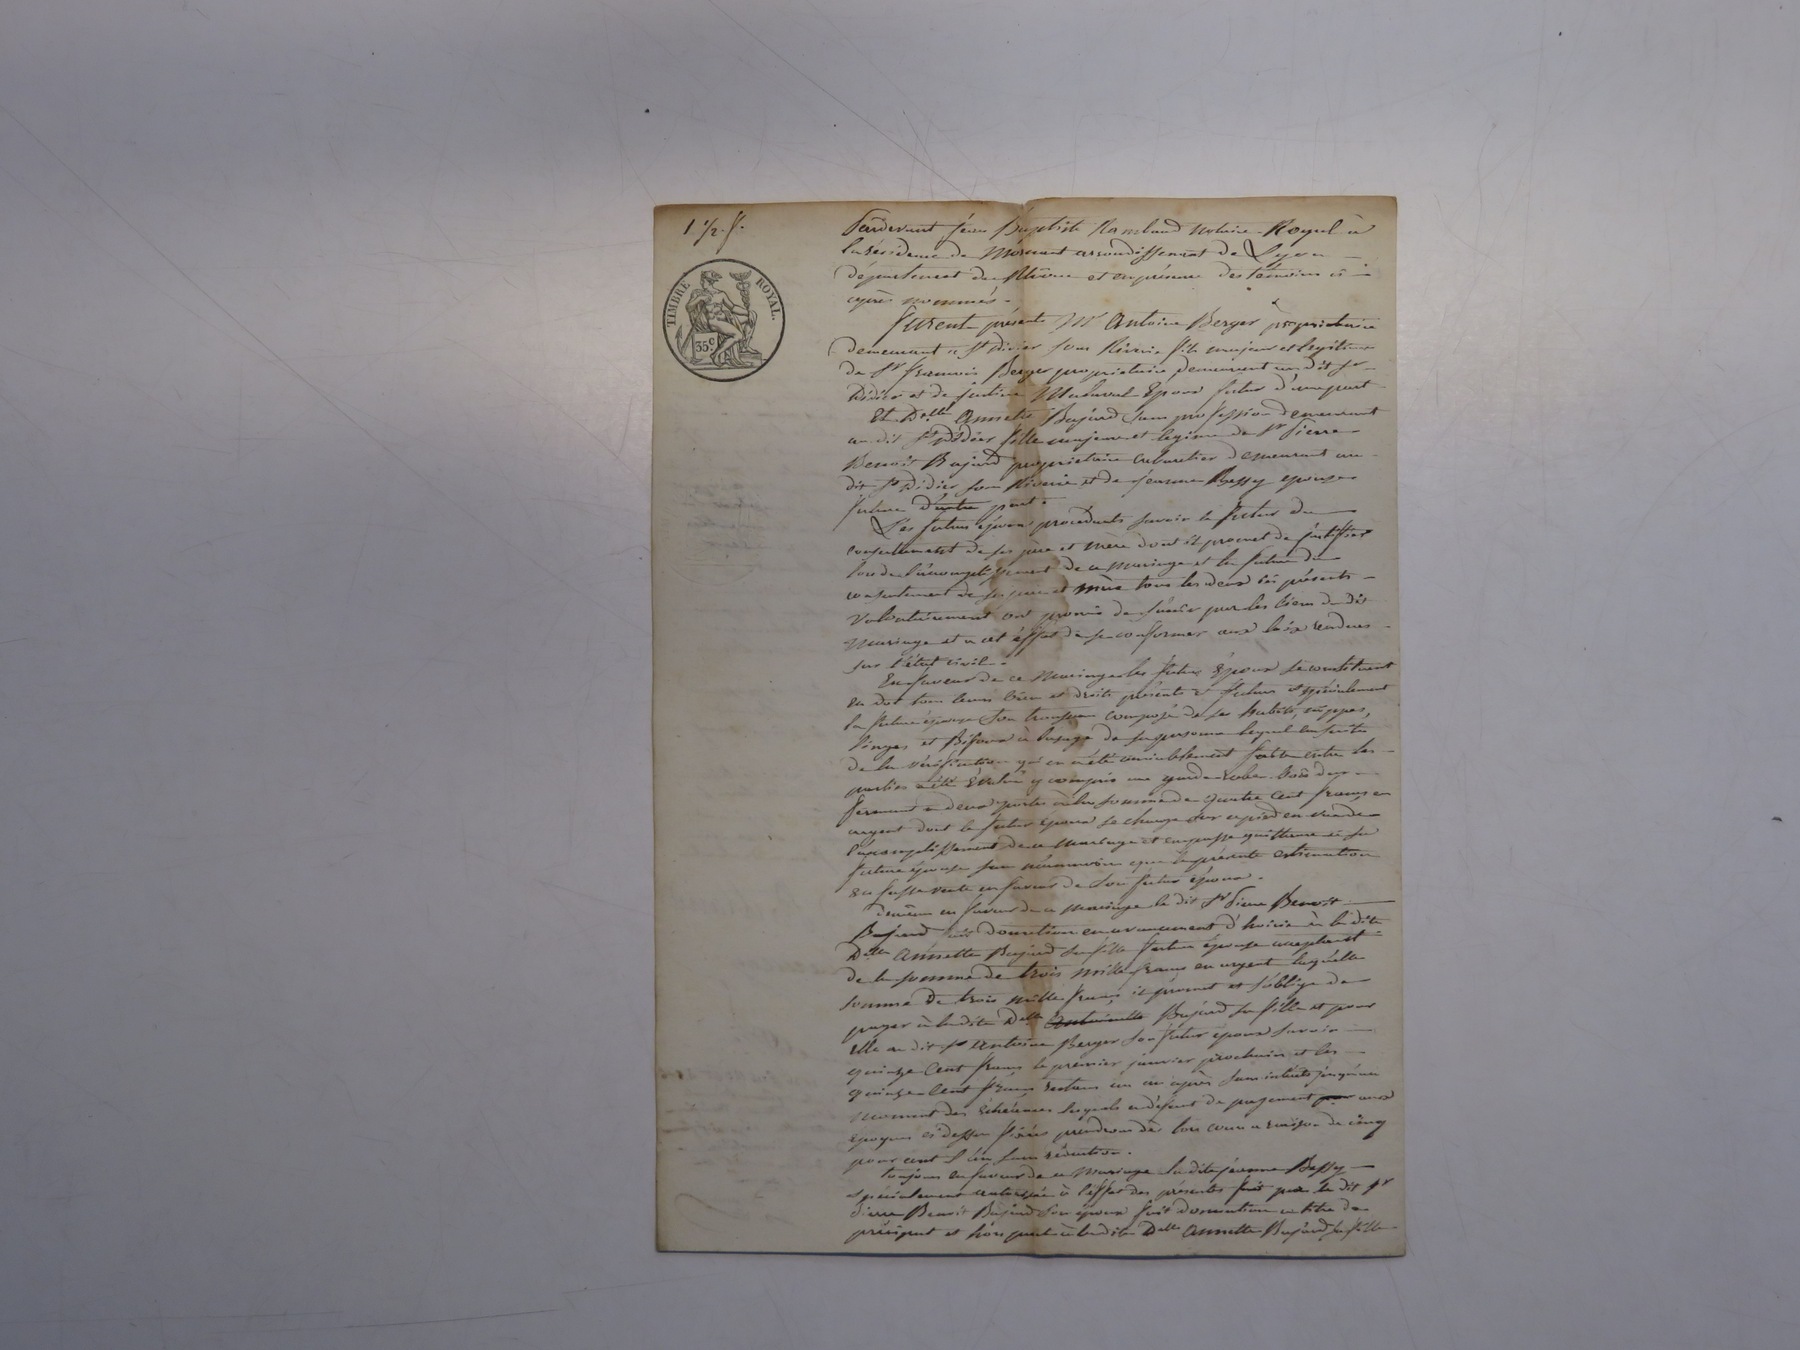 1 1/2 f.
TIMBRE ROYAL.
35 c
Pardevant jean Baptiste Rambaud Notaire Royal à
la résidence de Mornant arrondissement de Lyon
département du Rhône et en présence des témoins ci
après nommés.
furent présents Mr Antoine Berger propriétaire
demeurant à St Didier sous Riverie fils majeur et légitime
de Sr francois Berger propriétaire demeurant au dit St
Didier et de justine Malaval Epoux futur d'une part
Et Delle Annette Bajard sans profession demeurant
au dit St Didier fille majeure et legime de Sr Pierre
Benoit Bajard propriétaire cabaretier demeurant au
dit St Didier sous Riverie et de jeanne Bessy epouse
future d'autre part.
Les futurs époux procédants savoir le futur du
consentement de ses père et mère dont il promet de justiffier
lors de l'accomplissement de ce mariage et la future du
consentement de ses père et mère tous les deux ici présents
Volontairement ont promis de s'unir par les liens du dit
mariage et a cet éffet de se conformer aux loix rendues
sur l'état civil.
En faveur de ce Mariage les futurs Epoux se constituent
en dot tous leurs biens et droits présents et futurs et spécialement
la future épouse son trousseau composé de ses habits, nippes,
linges et Bijoux à l'usage de sa personne lequel en suite
de la vérification qui en a été amiablement faite entre les
parties a été évalué y compris une garderobe bois dur
fermant a deux portes à la somme de quatre cent francs en
argent dont le futur époux se charge sur ce pied en vue de
l'accomplissement de ce mariage et en passe quittance à sa
future épouse sans néanmoins que la présente estimation
en fasse vente en faveur de son futur époux.
demême en faveur de ce mariage le dit Sr Pierre Benoit
Bajard fait donation en avancement d'hoirie à la dite
Delle Annette Bajard sa fille future épouse acceptante
de la somme de trois mille francs en argent laquelle
somme de trois mille francs il promet et s'oblige de
payer à la dite Delle Antoinette Bajard sa fille et pour
elle au dit Sr Antoine Berger son futur époux savoir
quinze cent francs le premier janvier prochain et les
quinze cent francs restans un an après sans intérêts jusqu'au
moment des échéances lesquels a défaut de payement par aux
époques ci dessus fixées prendront dès lors cours a raison de cinq
pour cent l'an sans rétention.
toujours en faveur de ce Mariage la dite jeanne Bessy
spécialement autorisée à l'effet des présentes fait par le dit Sr
Pierre Benoit Bajard son époux fait donation a titre de
préciput et hors part à la dite Delle Annette Bajard sa fille